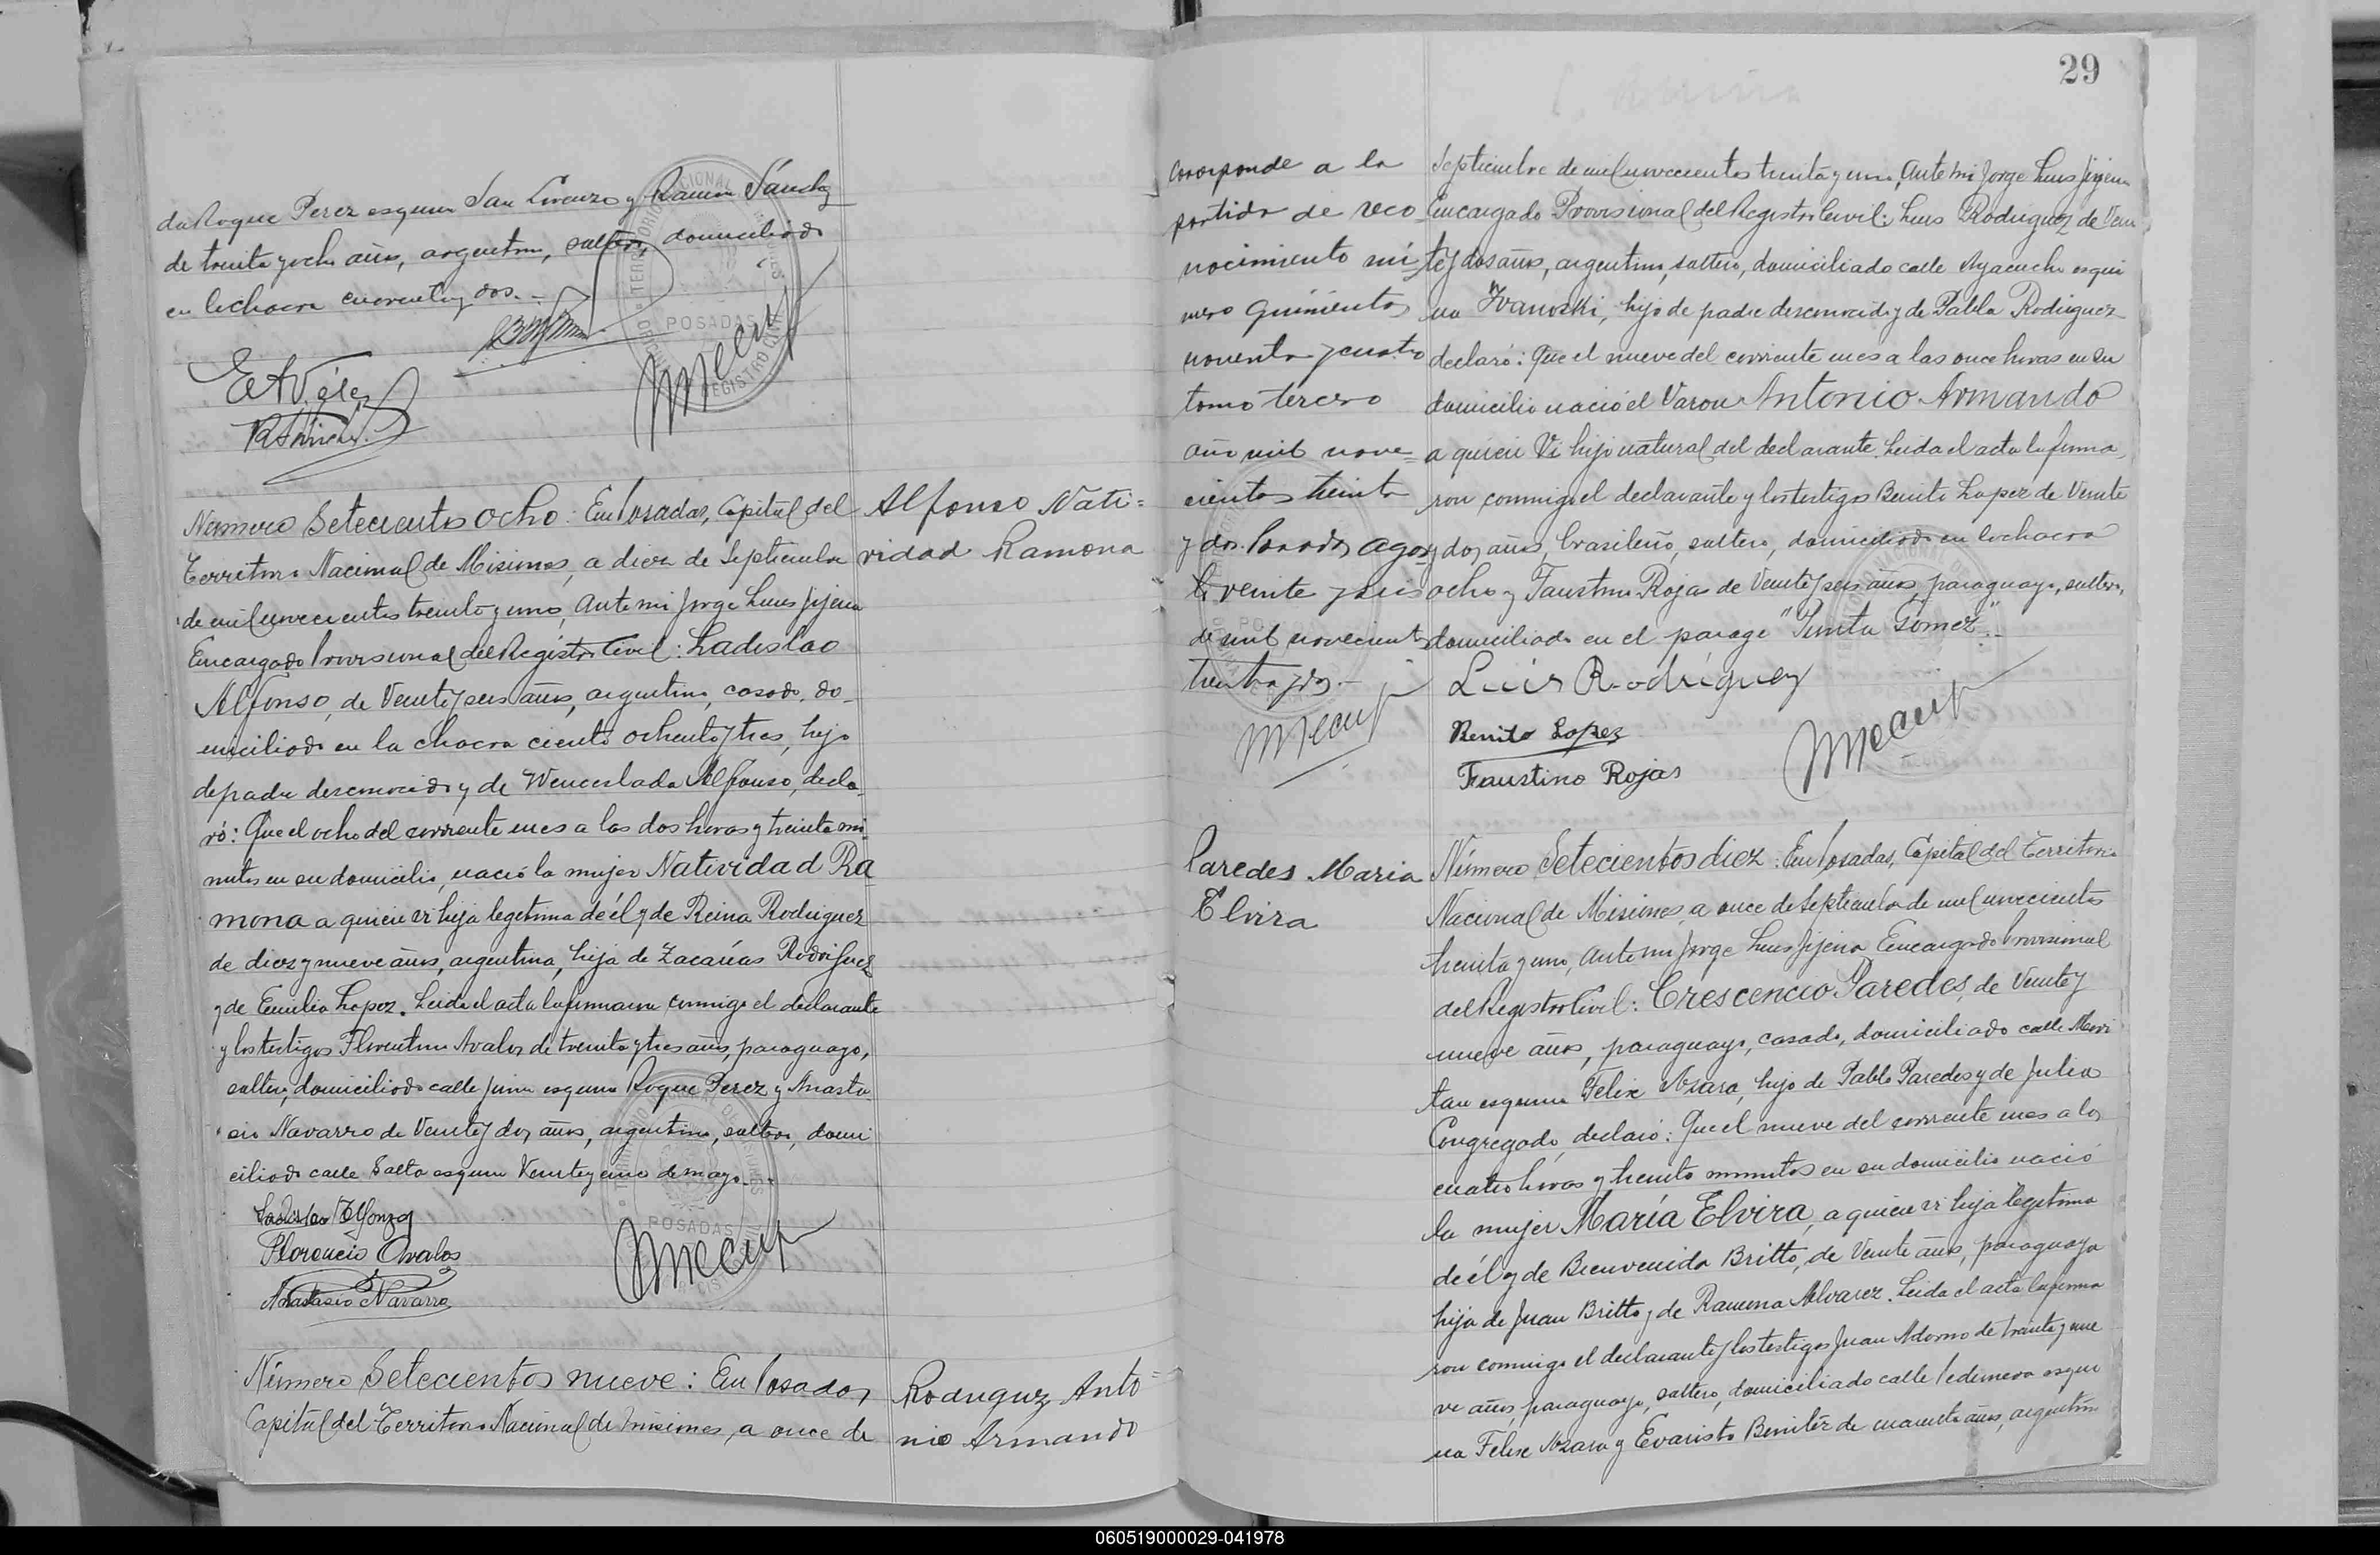 da Roque Perez esquina San Lorenzo y Ramon Sánchez
de treinta y ocho años, argentino, soltero, domiciliado
en lachacra cuarenta y dos.-
POSADAS
Número Setecientos ocho: En Posadas, Capital del
Territorio Nacional de Misiones, a diez de Septiembre
de mil novecientos treinta y uno, Ante mi Jorge Luis Jijena
Encargado Provisional del Registro Civil: Ladislao
Alfonso, de Veinte y seis años, argentino, casado, do-
miciliado en la chacra ciento ochenta y tres, hijo
de padre desconocido y de Wenceslada Alfonso, decla-
ró: Que el ocho del corriente mes a las dos horas y treinta mi
nutos en su domicilio, nació la mujer Natividad Ra
mona a quien vi hija legitima de él y de Reina Rodriguez
de diez y nueve años, argentina, hija de Zacarías Rodriguez
y de Emilia Lopez. Leida el acta la firmaron conmigo el declarante
y los testigos Florentino Avalos de treinta y tres años, paraguayo,
soltero, domiciliado calle Junin esquina Roque Perez y Anasta
cio Navarro de Veinte y dos años, argentino, soltero, domi
ciliado calle Salta esquina Veinte y cinco de mayo.-
Ladislao Alfonzo
Florencio Avalos
Anastasio Navarro
POSADAS
Alfonso Nati=
vidad Ramona
Número Setecientos nueve: En Posadas,
Capital del Territorio Nacional de Misiones, a once de
Rodriguez Anto=
nio Armando
29
Corresponde a la
partida de reco
nocimiento nú
mero quinientos
noventa y cuatro
tomo tercero
año mil nove=
cientos treinta
y dos. Posadas, agos
to veinte y seis
de mil novecientos
treinta y dos.-
Septiembre de mil novecientos treinta y uno, Ante mi Jorge Luis Jijena
Encargado Provisional del Registro Civil: Luis Rodriguez de Vein
te y dos años, argentino, soltero, domiciliado calle Ayacucho esqui
na Ivanoski, hijo de padre desconocido y de Pabla Rodriguez
declaró: Que el nueve del corriente mes a las once horas en su
domicilio nació el Varon Antonio Armando
a quien Vi hijo natural del declarante. Leida el acta la firma
ron conmigo el declarante y los testigos Benito Lopez de Veinte
y dos años, brasileño, soltero, domiciliado en lachacra
ocho y Faustino Rojas de Veinte y seis años, paraguayo, soltero,
domiciliado en el parage "Punta Gómez".-
Luis Rodríguez
Benito Lopez
Faustino Rojas
Paredes Maria
Elvira
Número Setecientos diez: En Posadas, Capital del Territorio
Nacional de Misiones, a once de Septiembre de mil novecientos
treinta y uno, Ante mi Jorge Luis Jijena Encargado Provisional
del Registro Civil: Crescencio Paredes, de Veinte y
nueve años, paraguayo, casado, domiciliado calle Mori
tan esquina Felix Azara, hijo de Pablo Paredes y de Julia
Congregado, declaró: Que el nueve del corriente mes a las
cuatro horas y treinta minutos en su domicilio nació
la mujer María Elvira, a quien vi hija legitima
de él y de Bienvenida Britto, de Veinte años, paraguaya
hija de Juan Britto y de Ramona Alvarez. Leida el acta la firma
ron conmigo el declarante y los testigos Juan Adorno de treinta y nue
ve años, paraguayo, soltero, domiciliado calle Ledesma esqui
na Felix Azara y Evaristo Benitez de cuarenta años, argentino
060519000029-041978